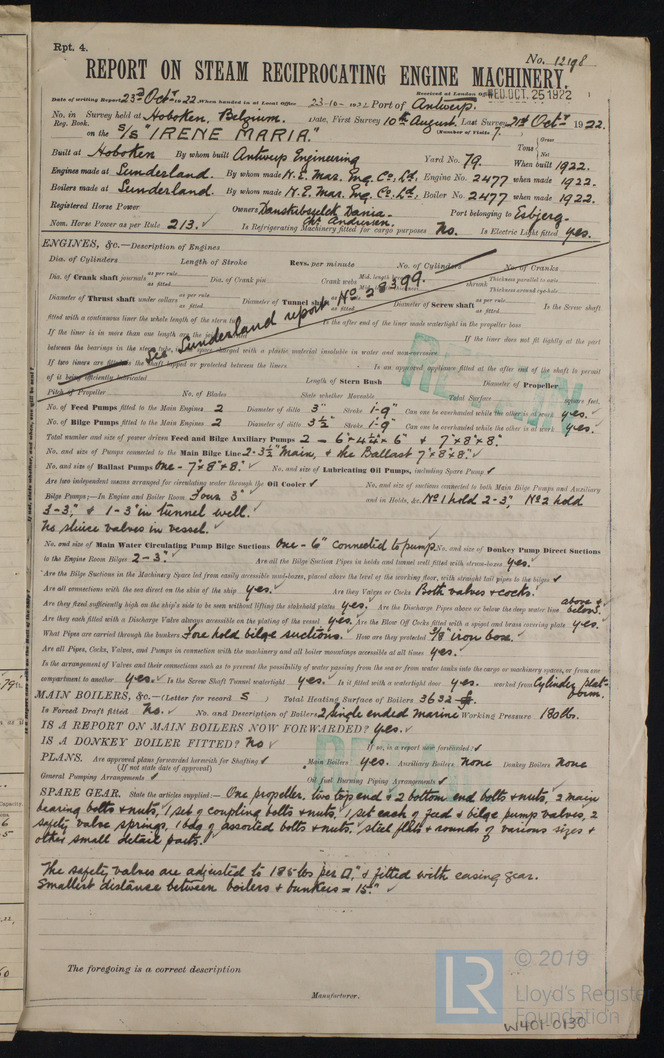 Rpt. 4.
No. 12198
REPORT ON STEAM RECIPROCATING ENGINE MACHINERY.
Received at London Office WED. OCT. 25 1922
Date of writing Report 23rd Octr 1922. When handed in at Local Office 23-10-1922 Port of Antwerp.
No. in Survey held at Hoboken, Belgium. Date, First Survey 10th August, Last Survey 21st Octr 1922.
Reg. Book. (Number of Visits 7.)
on the S/S "IRENE MARIA." Tons { Gross Net
Built at Hoboken By whom built Antwerp Engineering Yard No. 79. When built 1922.
Engines made at Sunderland. By whom made N.E. Mar. Eng. Co. Ld. Engine No. 2477 when made 1922.
Boilers made at Sunderland. By whom made N.E. Mar. Eng. Co. Ld. Boiler No. 2477 when made 1922.
Registered Horse Power Owners Port belonging to Esbjerg.
Nom. Horse Power as per Rule 213. ✓ Is Refrigerating Machinery fitted for cargo purposes No. Is Electric Light fitted yes.
ENGINES, &c.—Description of Engines
Dia. of Cylinders Length of Stroke Revs. per minute No. of Cylinders No. of Cranks
Dia. of Crank shaft journals as per rule as fitted Dia. of Crank pin Crank webs Mid. length shrunk Thickness parallel to axis Thickness around eye-hole
Diameter of Thrust shaft under collars as per rule as fitted Diameter of Tunnel shaft as per rule as fitted Diameter of Screw shaft as per rule as fitted Is the Screw shaft
See Sunderland report No. 28399.
fitted with a continuous liner the whole length of the stern tube Is the after end of the liner made watertight in the propeller boss
If the liner is in more than one length are the joints If the liner does not fit tightly at the part
between the bearings in the stern tube, is the space charged with a plastic material insoluble in water and non-corrosive
If two liners are fitted, is the shaft lapped or protected between the liners Is an approved appliance fitted at the after end of the shaft to permit
of it being efficiently lubricated Length of Stern Bush Diameter of Propeller
Pitch of Propeller No. of Blades State whether Moveable Total Surface square feet.
No. of Feed Pumps fitted to the Main Engines 2 Diameter of ditto 3" Stroke 1-9" Can one be overhauled while the other is at work yes. ✓
No. of Bilge Pumps fitted to the Main Engines 2 Diameter of ditto 3½" Stroke 1-9" Can one be overhauled while the other is at work yes. ✓
Total number and size of power driven Feed and Bilge Auxiliary Pumps 2 – 6"x4¼"x6" & 7"x8"x8".
No. and size of Pumps connected to the Main Bilge Line 2-3½" Main, & the Ballast 7"x8"x8". ✓
No. and size of Ballast Pumps One - 7"x8"x8". ✓ No. and size of Lubricating Oil Pumps, including Spare Pump ✓
Are two independent means arranged for circulating water through the Oil Cooler ✓ No. and size of suctions connected to both Main Bilge Pumps and Auxiliary
Bilge Pumps;—In Engine and Boiler Room Four 3" and in Holds, &c. No 1 hold 2-3", No 2 hold
3-3", & 1-3" in tunnel well.
No sluice valves in vessel.
No. and size of Main Water Circulating Pump Bilge Suctions One – 6" connected to pump. No. and size of Donkey Pump Direct Suctions
to the Engine Room Bilges 2 – 3". ✓ Are all the Bilge Suction Pipes in holds and tunnel well fitted with strum-boxes yes. ✓
Are the Bilge Suctions in the Machinery Space led from easily accessible mud-boxes, placed above the level of the working floor, with straight tail pipes to the bilges ✓
Are all connections with the sea direct on the skin of the ship yes. ✓ Are they Valves or Cocks Both valves & cocks.
Are they fixed sufficiently high on the ship's side to be seen without lifting the stokehold plates yes. ✓ Are the Discharge Pipes above or below the deep water line above & below.
Are they each fitted with a Discharge Valve always accessible on the plating of the vessel yes. ✓ Are the Blow Off Cocks fitted with a spigot and brass covering plate yes. ✓
What Pipes are carried through the bunkers Fore hold bilge suctions. ✓ How are they protected 5/8" iron box. ✓
Are all Pipes, Cocks, Valves, and Pumps in connection with the machinery and all boiler mountings accessible at all times yes. ✓
Is the arrangement of Valves and their connections such as to prevent the possibility of water passing from the sea or from water tanks into the cargo or machinery spaces, or from one
compartment to another yes. ✓ Is the Screw Shaft Tunnel watertight yes. ✓ Is it fitted with a watertight door yes. ✓ worked from Cylinder Platform.
MAIN BOILERS, &c.—(Letter for record S ) Total Heating Surface of Boilers 3632
Is Forced Draft fitted No. ✓ No. and Description of Boilers 2 Single ended marine Working Pressure 180 lbs.
IS A REPORT ON MAIN BOILERS NOW FORWARDED? yes. ✓
IS A DONKEY BOILER FITTED? No ✓ If so, is a report now forwarded? ✓
PLANS. Are approved plans forwarded herewith for Shafting ✓ Main Boilers yes. Auxiliary Boilers none Donkey Boilers none
(If not state date of approval)
General Pumping Arrangements ✓ Oil fuel Burning Piping Arrangements ✓
SPARE GEAR. State the articles supplied:— One propeller, two top end & 2 bottom end bolts & nuts, 2 main
bearing bolts & nuts, 1 set of coupling bolts & nuts, 1 set each of feed & bilge pump valves, 2
safety valve springs, 1 bdg of assorted bolts & nuts, steel flats & rounds of various sizes &
other small detail parts.
The safety valves are adjusted to 185 lbs per □", & fitted with easing gear.
Smallest distance between boilers & bunkers = 15". ✓
The foregoing is a correct description
Manufacturer.
LR © 2019
Lloyd's Register
Foundation
W401-0130